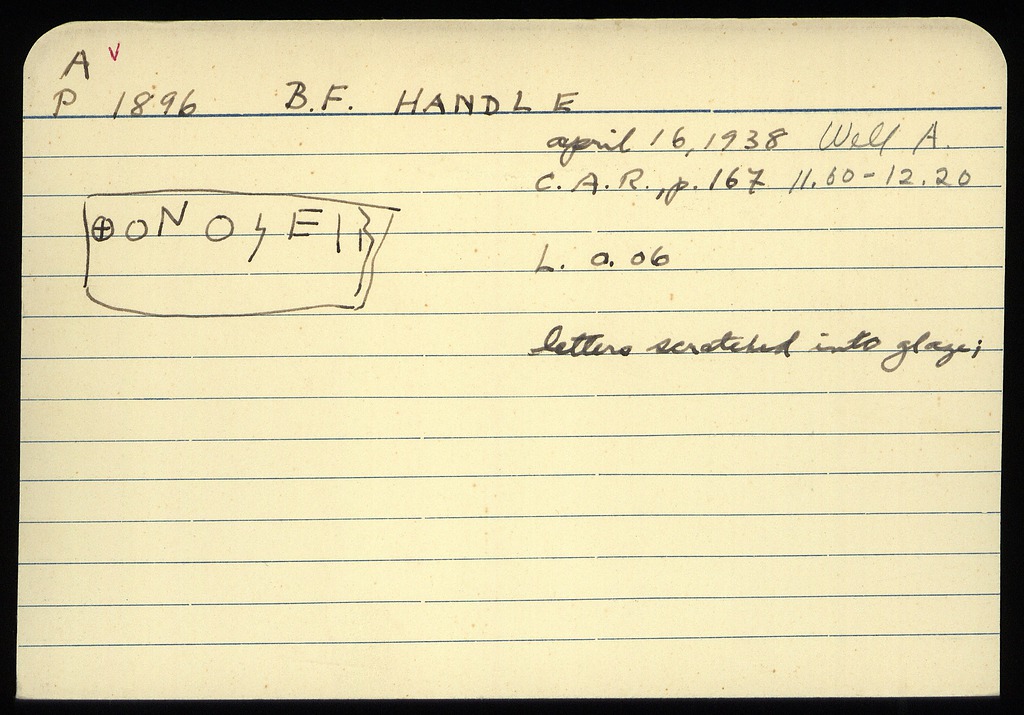 A v
P 1896 B.F. HANDLE
april 16, 1938 Well A.
C.A.R., p. 167 11.60-12.20
⊕ONOϟEI
L. 0.06
letters scratched into glaze;